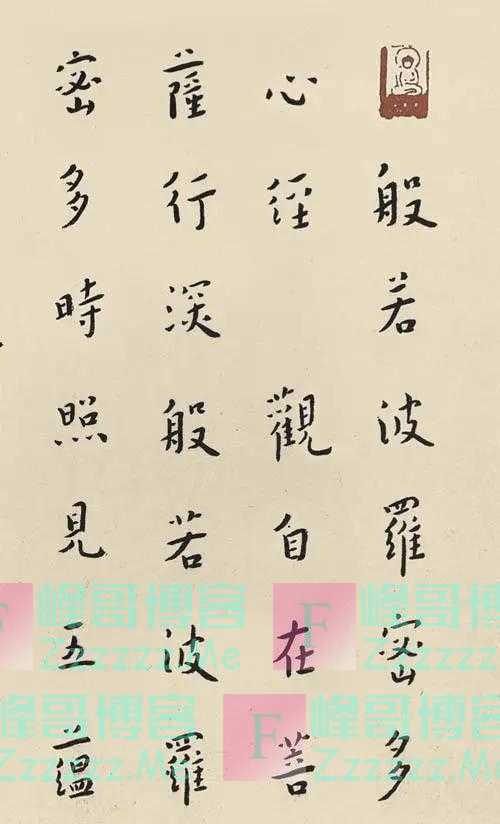 般若波羅密多
心經 觀自在菩
薩行深般若波羅
密多時照見五蘊
F 峰哥博客
Zzzzzz.Me
F 峰哥博客
Zzzzzz.Me
峰哥博客
Zzzzzz.Me
F 峰哥博客
Zzzzzz.Me